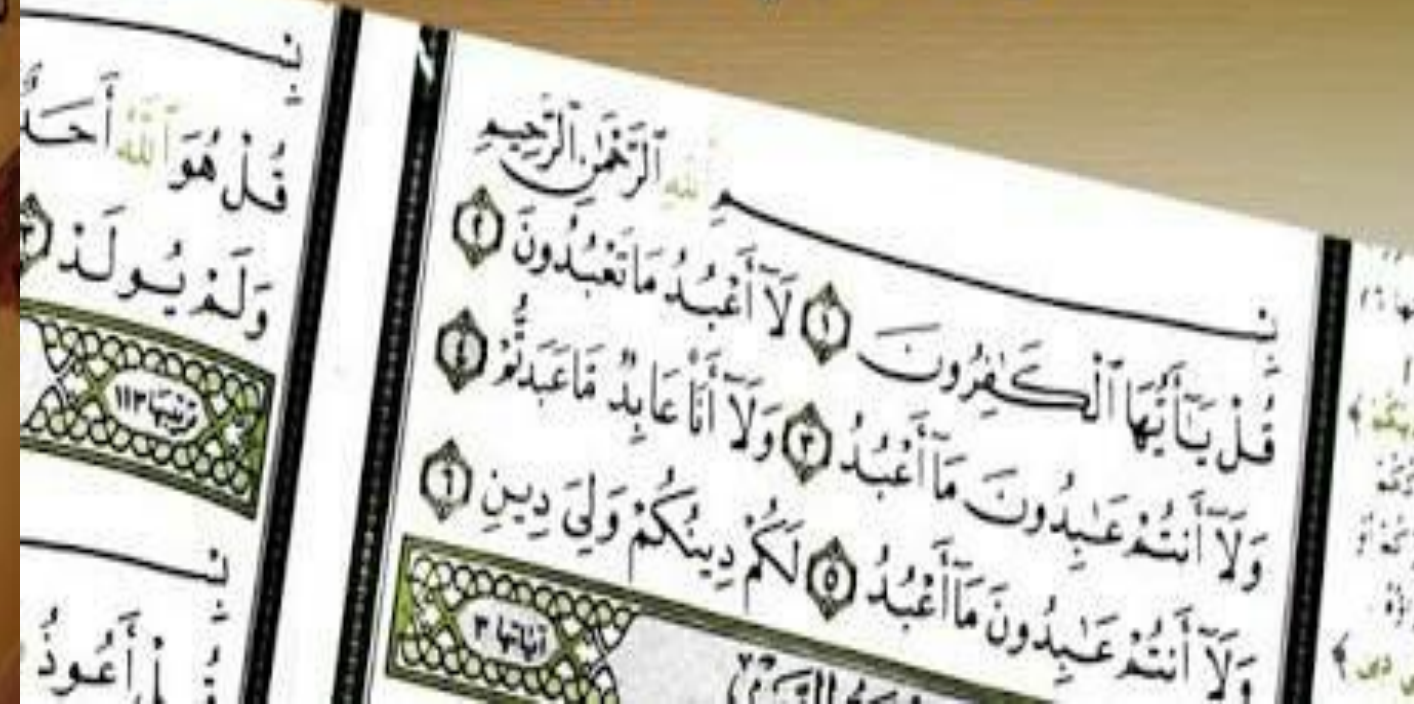 بِسْمِ ٱللَّهِ ٱلرَّحْمَٰنِ ٱلرَّحِيمِ
قُلْ يَٰٓأَيُّهَا ٱلْكَٰفِرُونَ ١ لَآ أَعْبُدُ مَا تَعْبُدُونَ ٢
وَلَآ أَنتُمْ عَٰبِدُونَ مَآ أَعْبُدُ ٣ وَلَآ أَنَا۠ عَابِدٌ مَّا عَبَدتُّمْ ٤
وَلَآ أَنتُمْ عَٰبِدُونَ مَآ أَعْبُدُ ٥ لَكُمْ دِينُكُمْ وَلِيَ دِينِ ٦
آياتها ٣
قُلْ هُوَ ٱللَّهُ أَحَدٌ
وَلَمْ يُولَدْ ٣
ترتيبها ١١٣
قُلْ أَعُوذُ